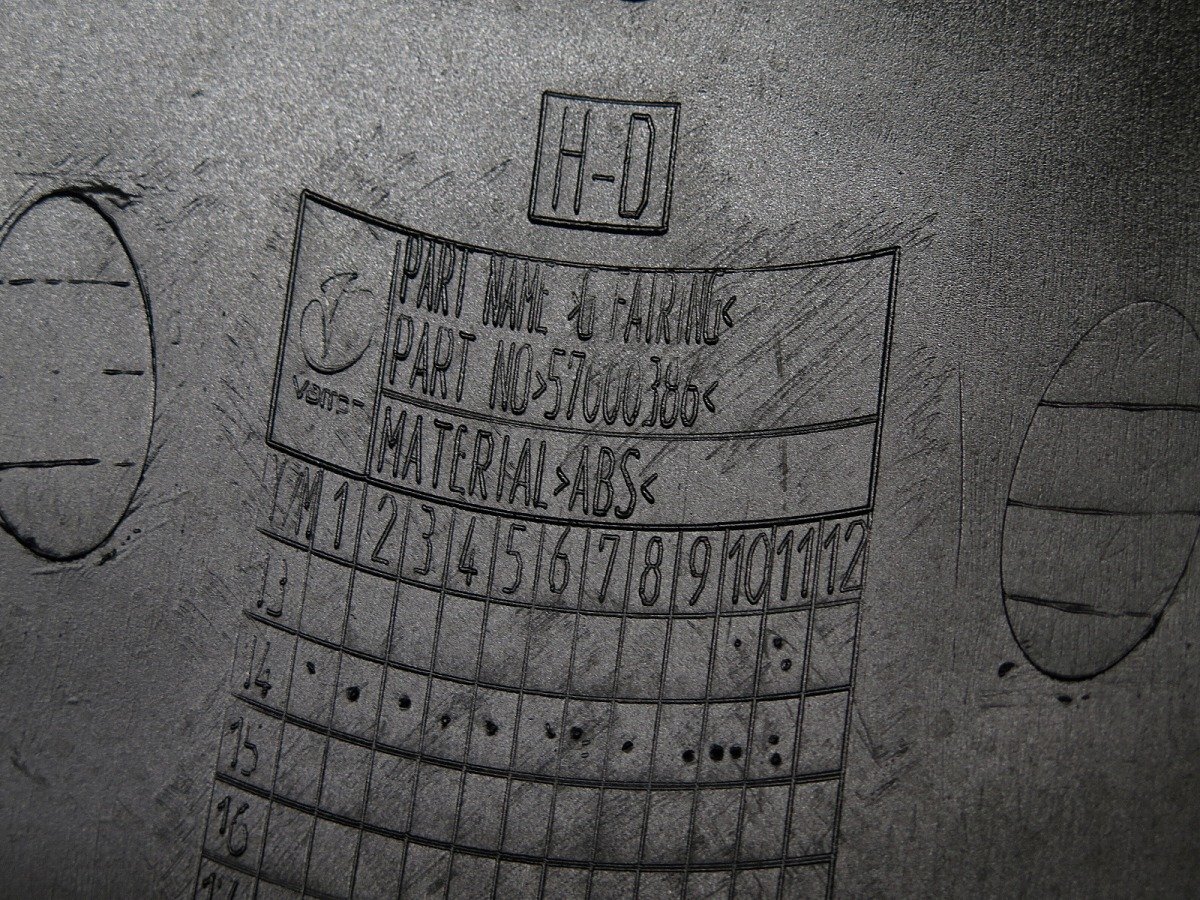 H-D
PART NAME > FAIRING<
PART NO>57000386<
MATERIAL>ABS<
Y/M 1 2 3 4 5 6 7 8 9 10 11 12
13
14
15
16